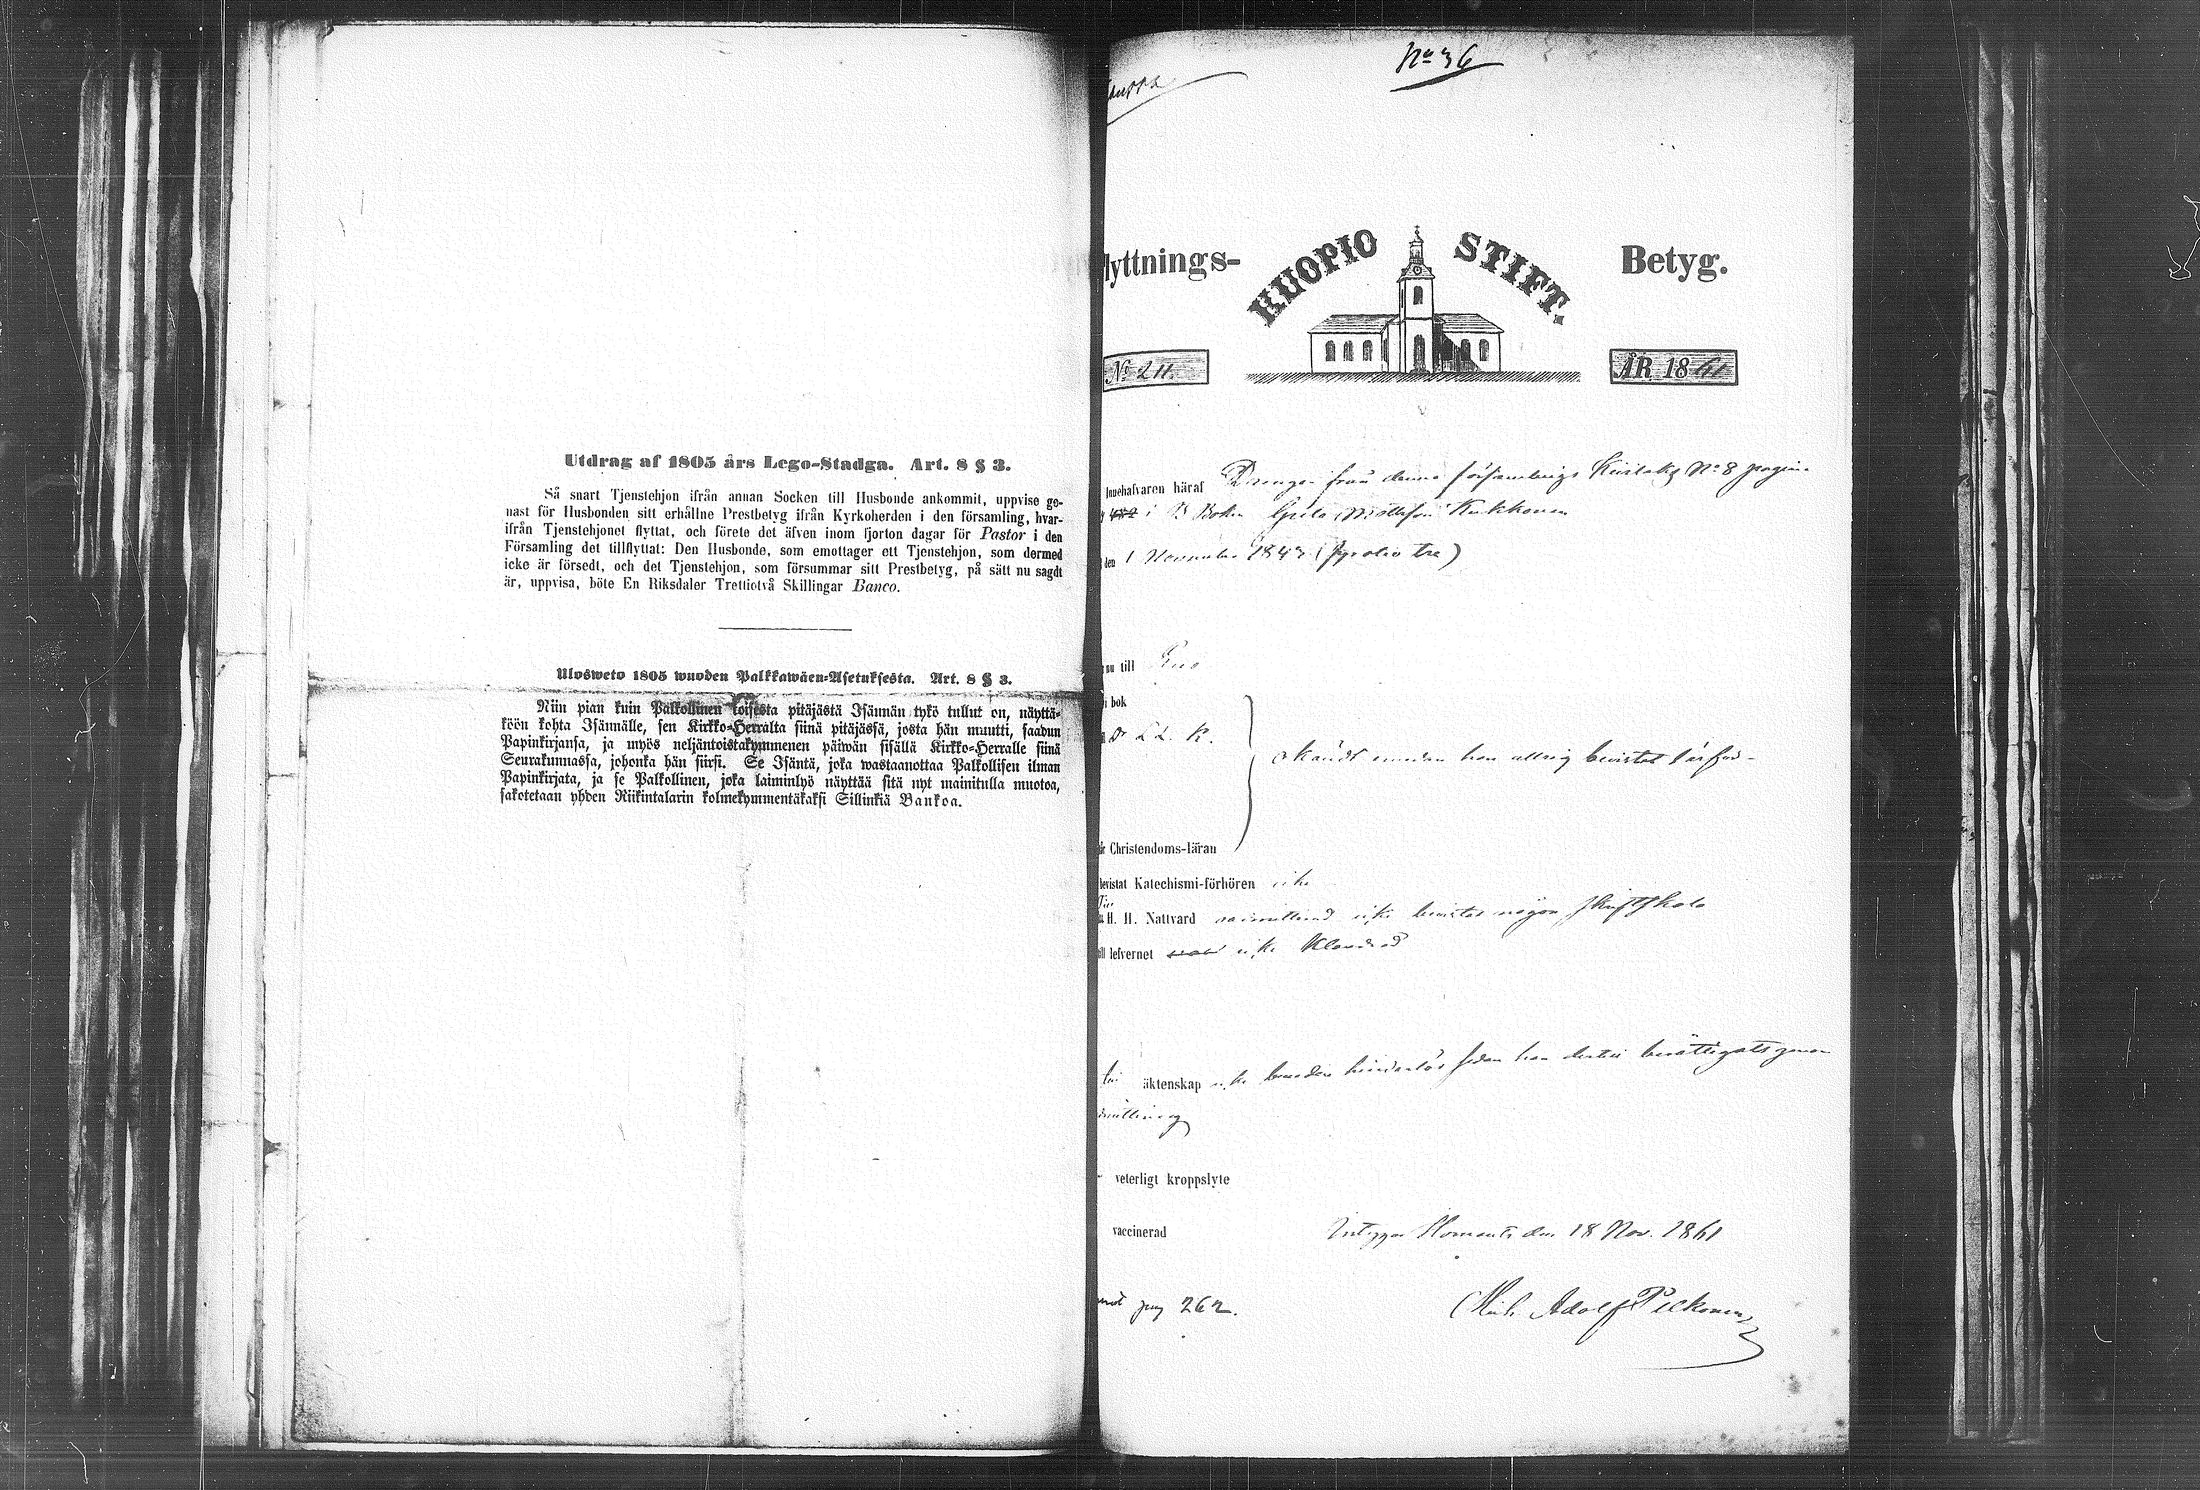 Utdrag af 1805 års Lego-Stadga. Art. 8 § 3.
Så snart Tjenstehjon ifrån annan Socken till Husbonde ankommit, uppvise ge-
nast för Husbonden sitt erhållne Prestbetyg ifrån Kyrkoherden i den församling, hvar-
ifrån Tjenstehjonet flyttat, och förete det äfven inom fjorton dagar för Pastor i den
Församling det tillflyttat: Den Husbonde, som emottager ett Tjenstehjon, som dermed
icke är försedt, och det Tjenstehjon, som försummar sitt Prestbetyg, på sätt nu sagdt
är, uppvisa, böte En Riksdaler Trettiotvå Skillingar Banco.
Ulosweto 1805 wuoden Palkkawäen-Asetuksesta. Art. 8 § 3.
Niin pian kuin Palkollinen toisesta pitäjästä Isännän tykö tullut on, näyttä-
köön kohta Isännälle, sen Kirkko-Herralta siinä pitäjässä, josta hän muutti, saadun
Papinkirjansa, ja myös neljäntoistakymmenen päiwän sisällä Kirkko-Herralle siinä
Seurakunnassa, johonka hän siirsi. Se Isäntä, joka wastaanottaa Palkollisen ilman
Papinkirjata, ja se Palkollinen, joka laiminlyö näyttää sitä nyt mainitulla muotoa,
sakotetaan yhden Riikintalarin kolmekymmentäkaksi Sillinkiä Bankoa.
No 36
lyttnings- KUOPIO STIFT. Betyg.
No 211. ÅR 1861
Innehafvaren häraf Drengen från denna församlings No 8 pagina
i Boken Mattsson Kukkonen
den 1 November 1843 (fyratio tre)
nu till
i bok
L. L. K.
emedan han aldrig bevistat läsför-
Christendoms-läran
bevistat Katechismi-förhören icke
H. H. Nattvard icke bevistat någon skriftskola
till lefvernet icke klandrad
till äktenskap icke hinderlös sedan han dertill berättigats genom
veterligt kroppslyte
vaccinerad Intygar Ilomants den 18 Nov. 1861
pag 262.
Adolf Pelkonen